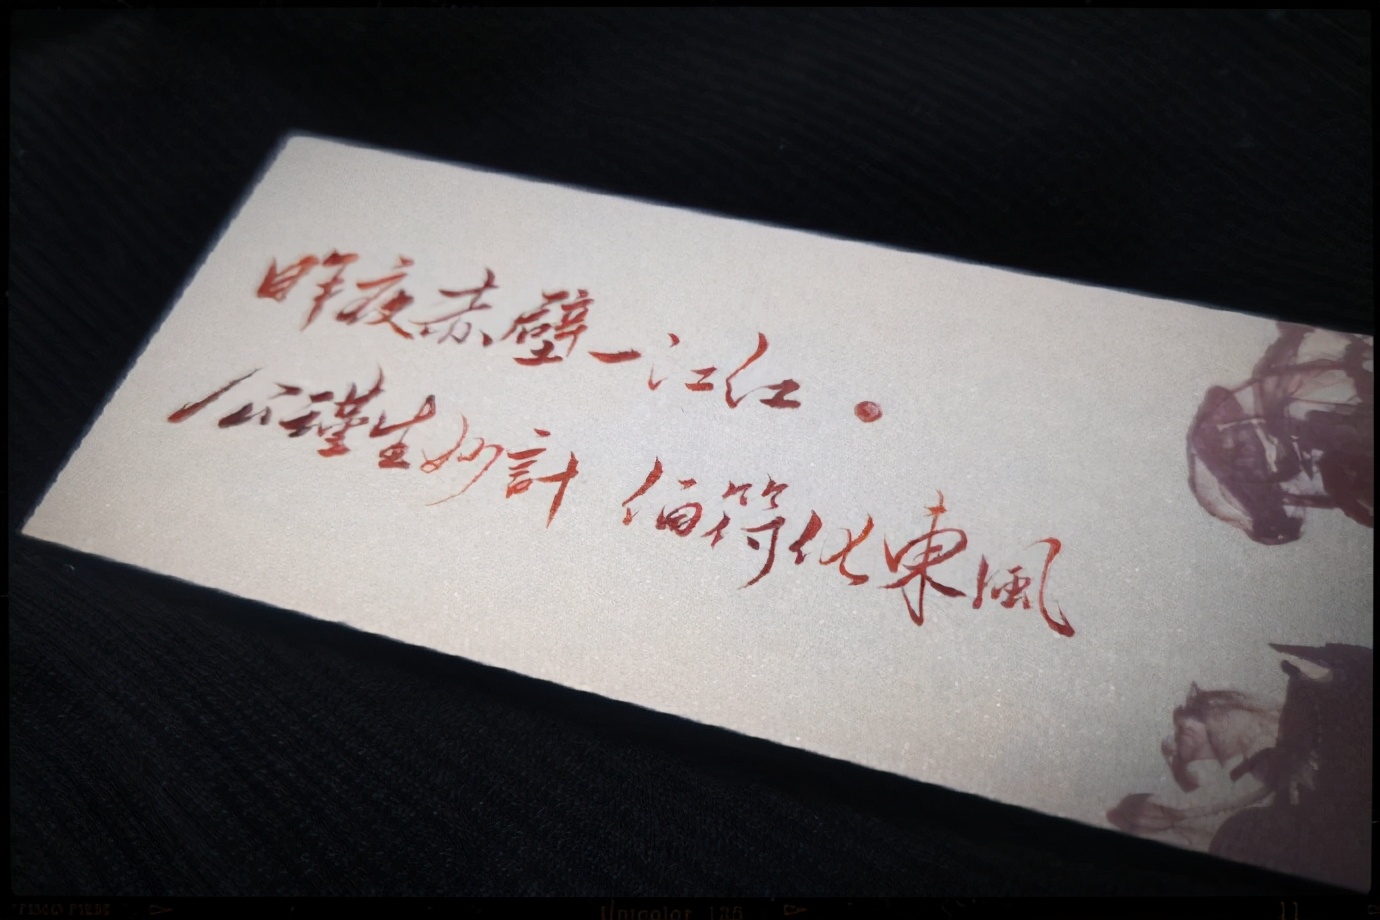 昨夜赤壁一江红
公瑾生妙計 伯符化東風